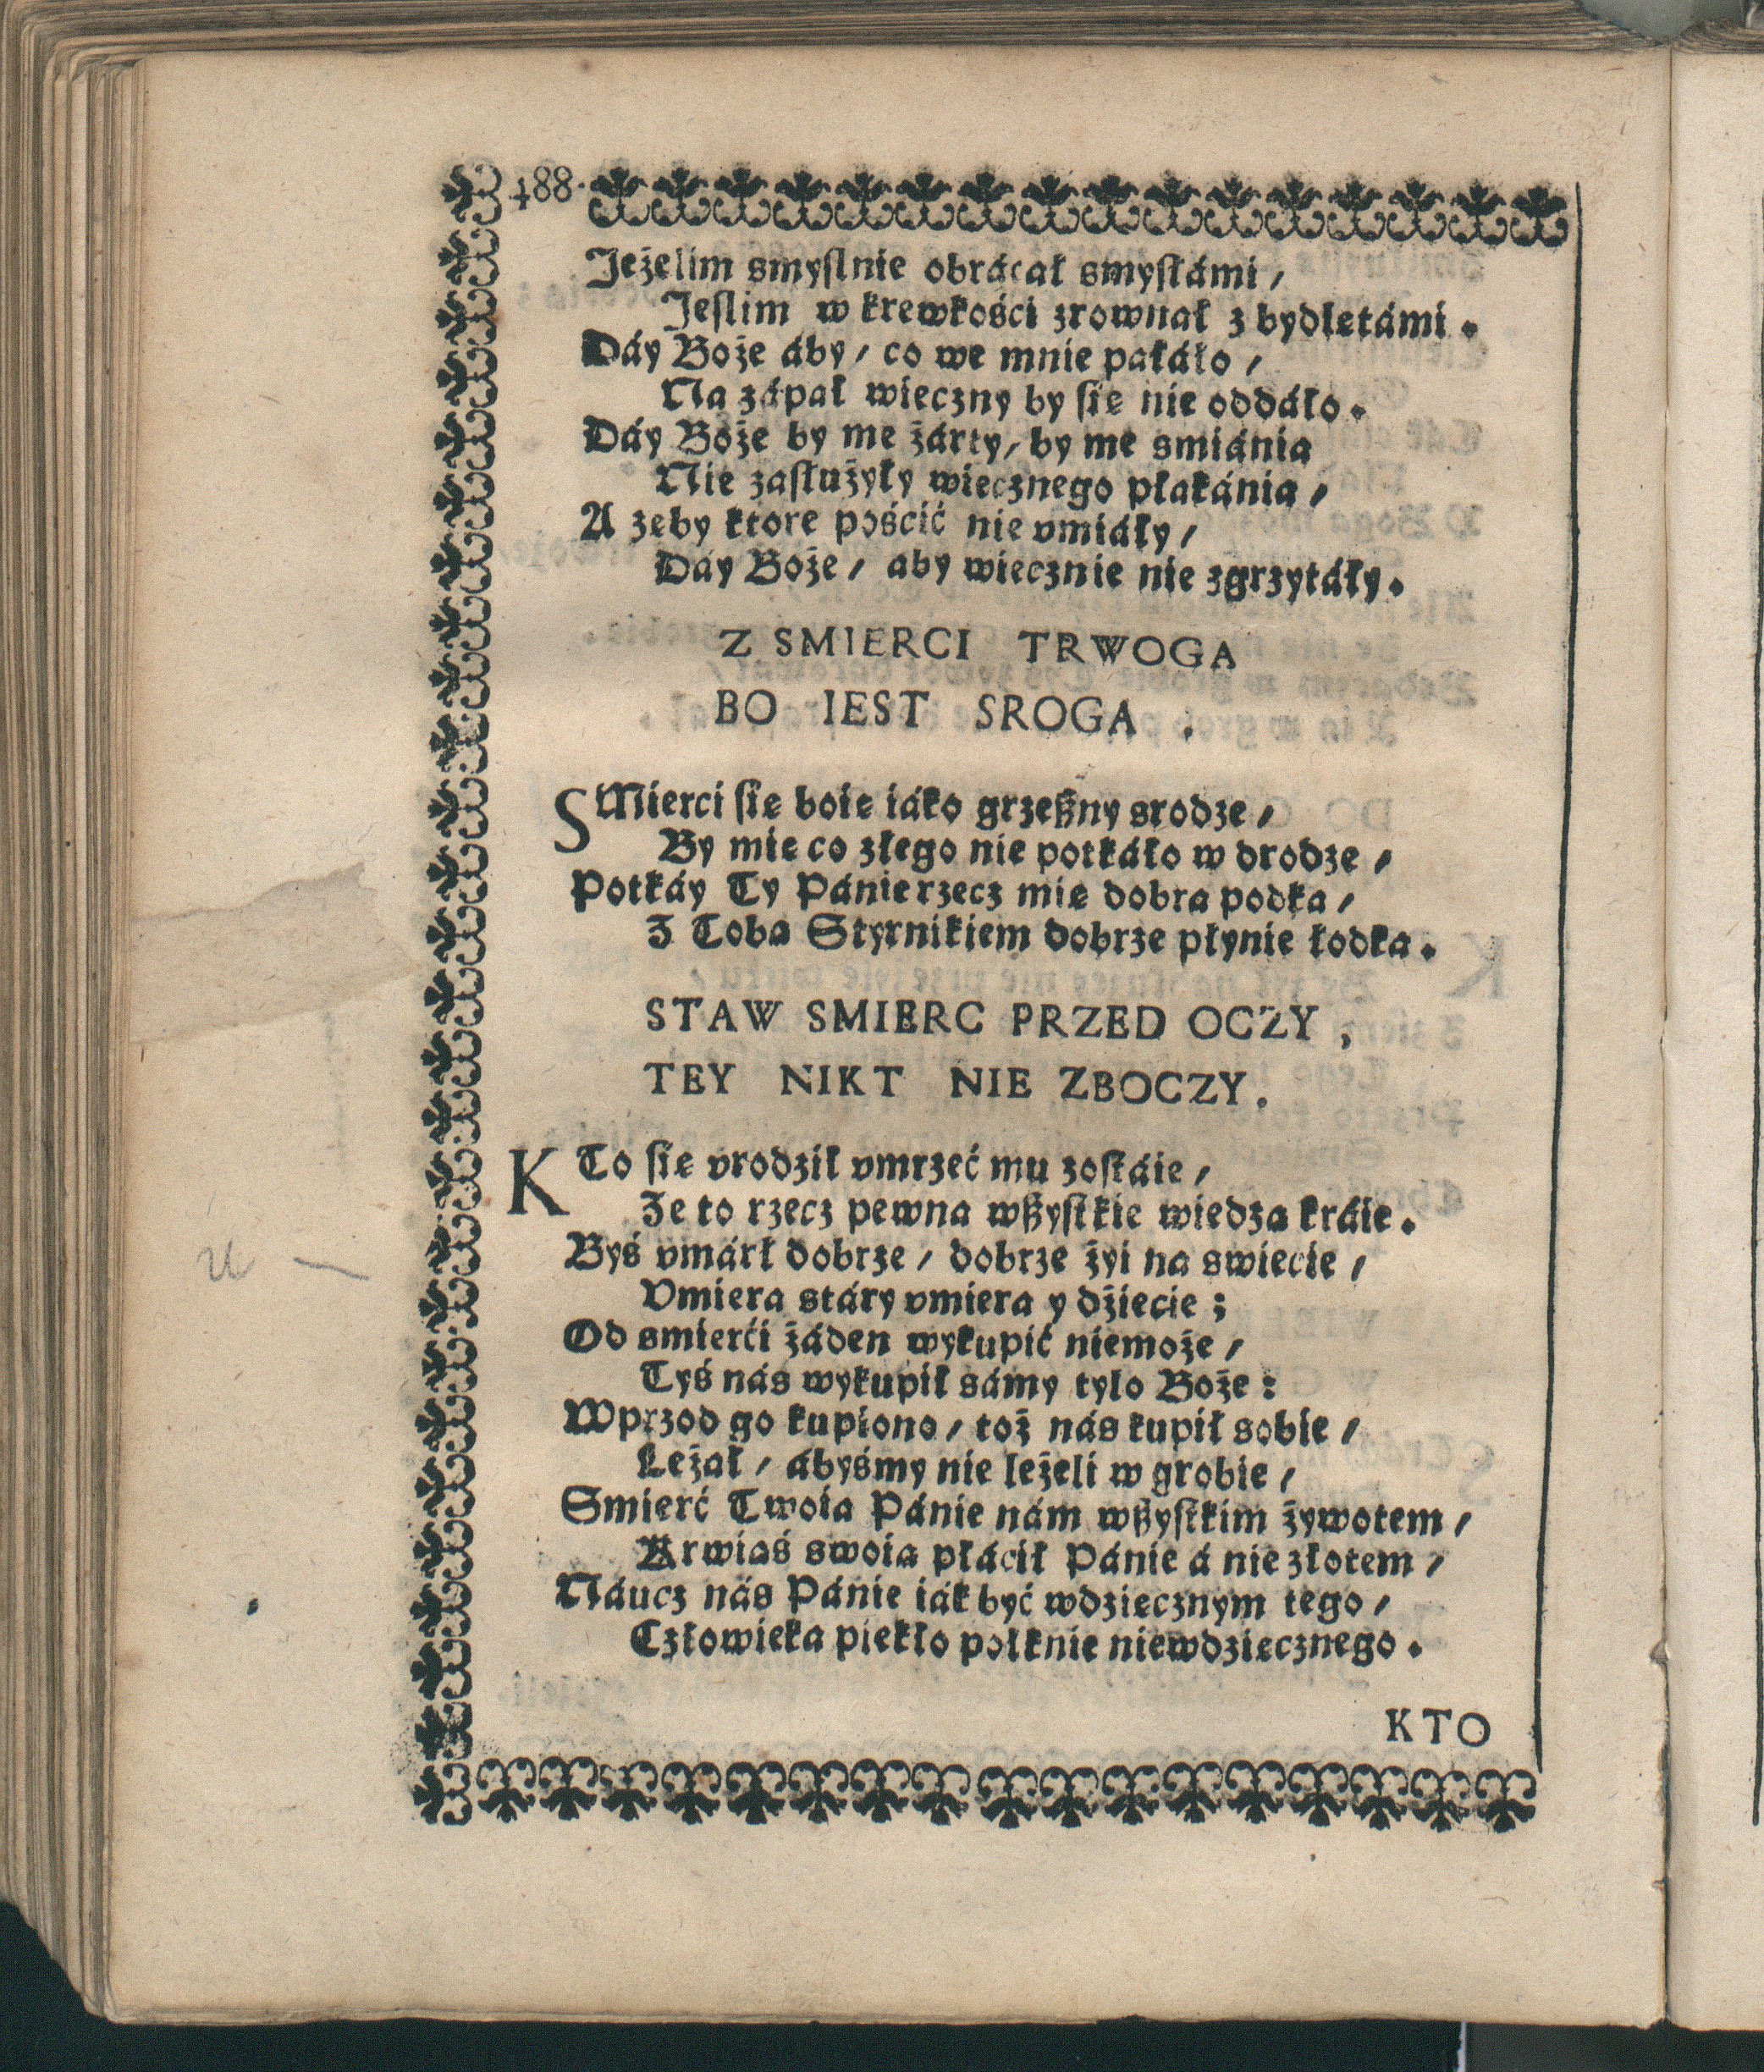 488.
Jeżelim smyslnie obrácał smysłámi /
Jeslim w krewkości zrownał z bydlętámi.
Dáy Boże áby / co we mnie pałáło /
Na zápał wieczny by się nie oddáło.
Dáy Boże by me żárty / by me smiánia
Nie zasłużyły wiecznego płakánia /
A zeby ktore pościć nie vmiáły /
Dáy Boże / aby wiecznie nie zgrzytáły.
Z SMIERCI TRWOGA
BO IEST SROGA .
SMierci się boię iáko grzeßny srodze /
By mię co złego nie potkáło w drodze /
Potkáy Ty Pánie rzecz mię dobra podka /
Z Tobą Styrnikiem dobrze płynie łodka.
STAW SMIERC PRZED OCZY ,
TEY NIKT NIE ZBOCZY.
KTo się vrodził vmrzeć mu zostáie /
Że to rzecz pewna wßystkie wiedzą kráie.
Byś vmárł dobrze / dobrze żyi na swiecie /
Vmiera stáry vmiera y dżiecie ;
Od smierći żáden wykupić niemoże /
Tyś nás wykupił sámy tylo Boże :
Wprzod go kupiono / toż nás kupił sobie /
Leżał / ábyśmy nie leżeli w grobie /
Smierć Twoia Pánie nám wßystkim żywotem /
Krwiąś swoią płácił Pánie á nie złotem /
Náucz nás Pánie iák być wdzięcznym tego /
Człowieka piekło połknie niewdzięcznego.
KTO